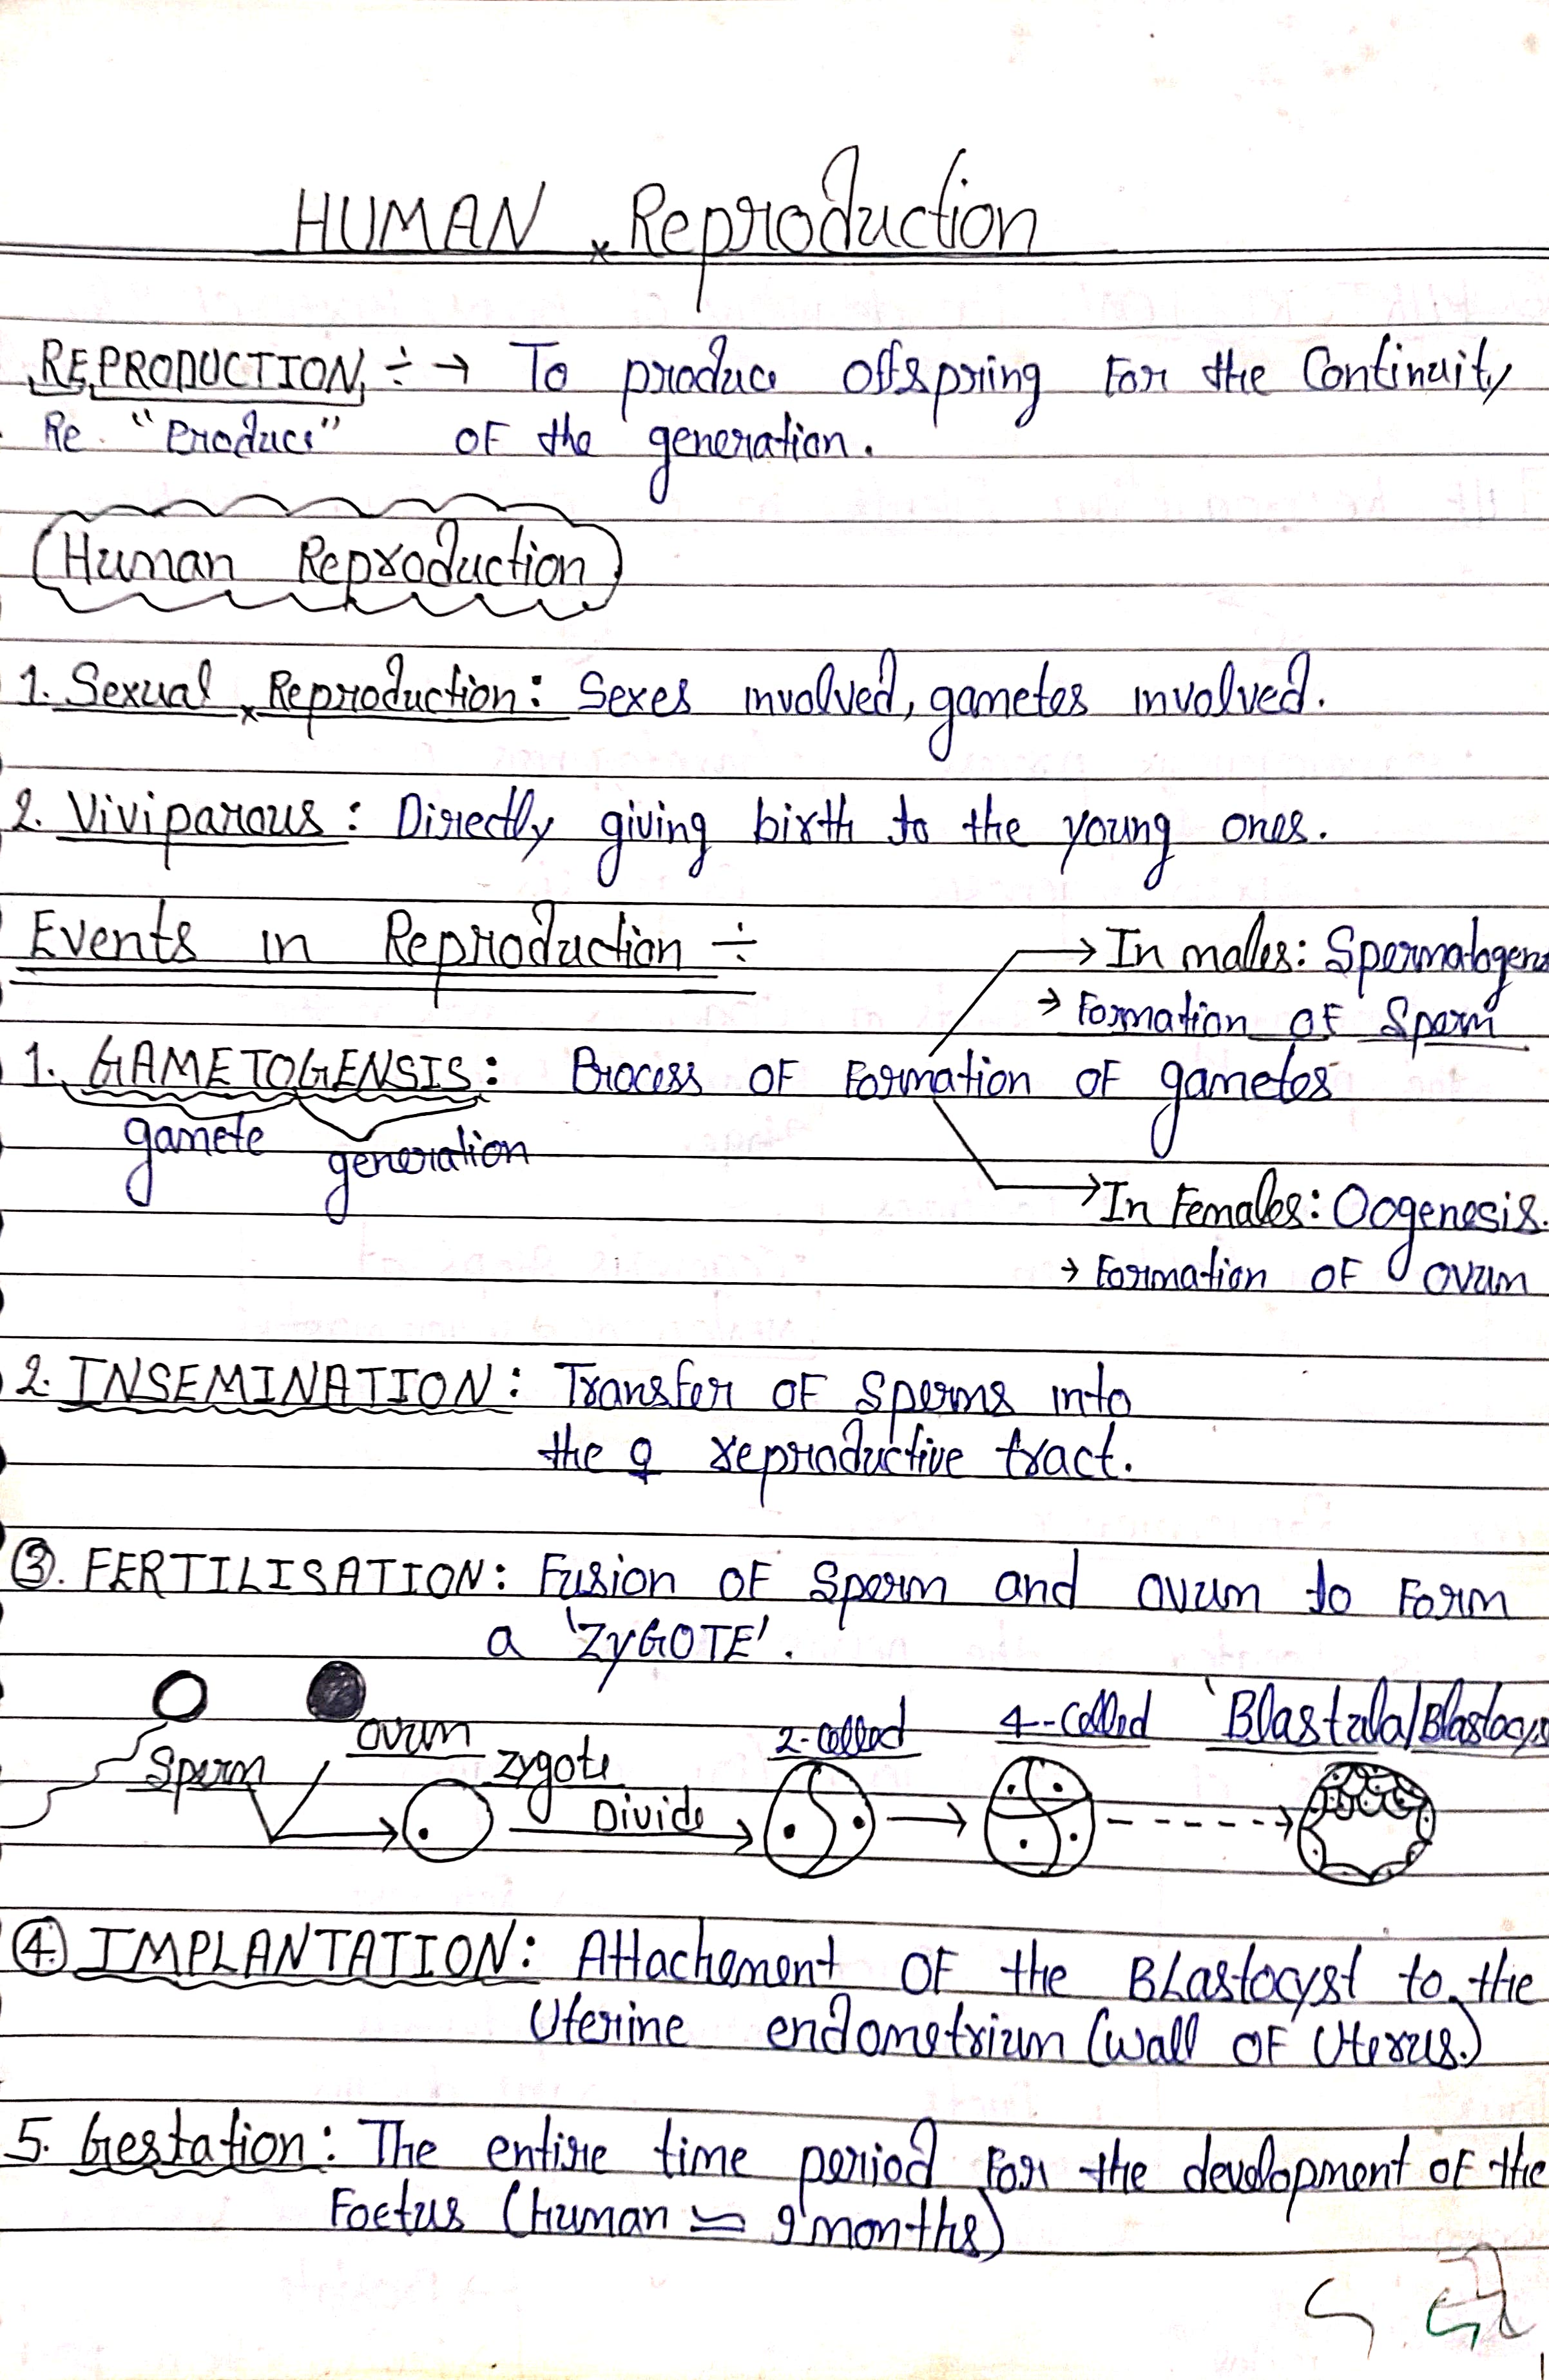 HUMAN Reproduction
REPRODUCTION ÷ → To produce offspring for the Continuity
Re "Produce" of the generation.
Human Reproduction
1. Sexual Reproduction: Sexes involved, gametes involved.
2. Viviparous: Directly giving birth to the young ones.
Events in Reproduction ÷
→ In males: Spermatogens
→ Formation of Sperm
1. GAMETOGENSIS: Process of Formation of gametes
gamete generation
→ In Females: Oogenesis.
→ Formation of ovum
2. INSEMINATION: Transfer of Sperms into
the ♀ reproductive tract.
③. FERTILISATION: Fusion of Sperm and ovum to Form
a 'ZyGOTE'.
Sperm ovum zygote Divide 2-celled 4-celled 'Blastula/Blastocys
④ IMPLANTATION: Attachement of the Blastocyst to the
Uterine endometrium (wall of Uterus.)
5. Gestation: The entire time period for the development of the
Foetus (Human ≃ 9 months)